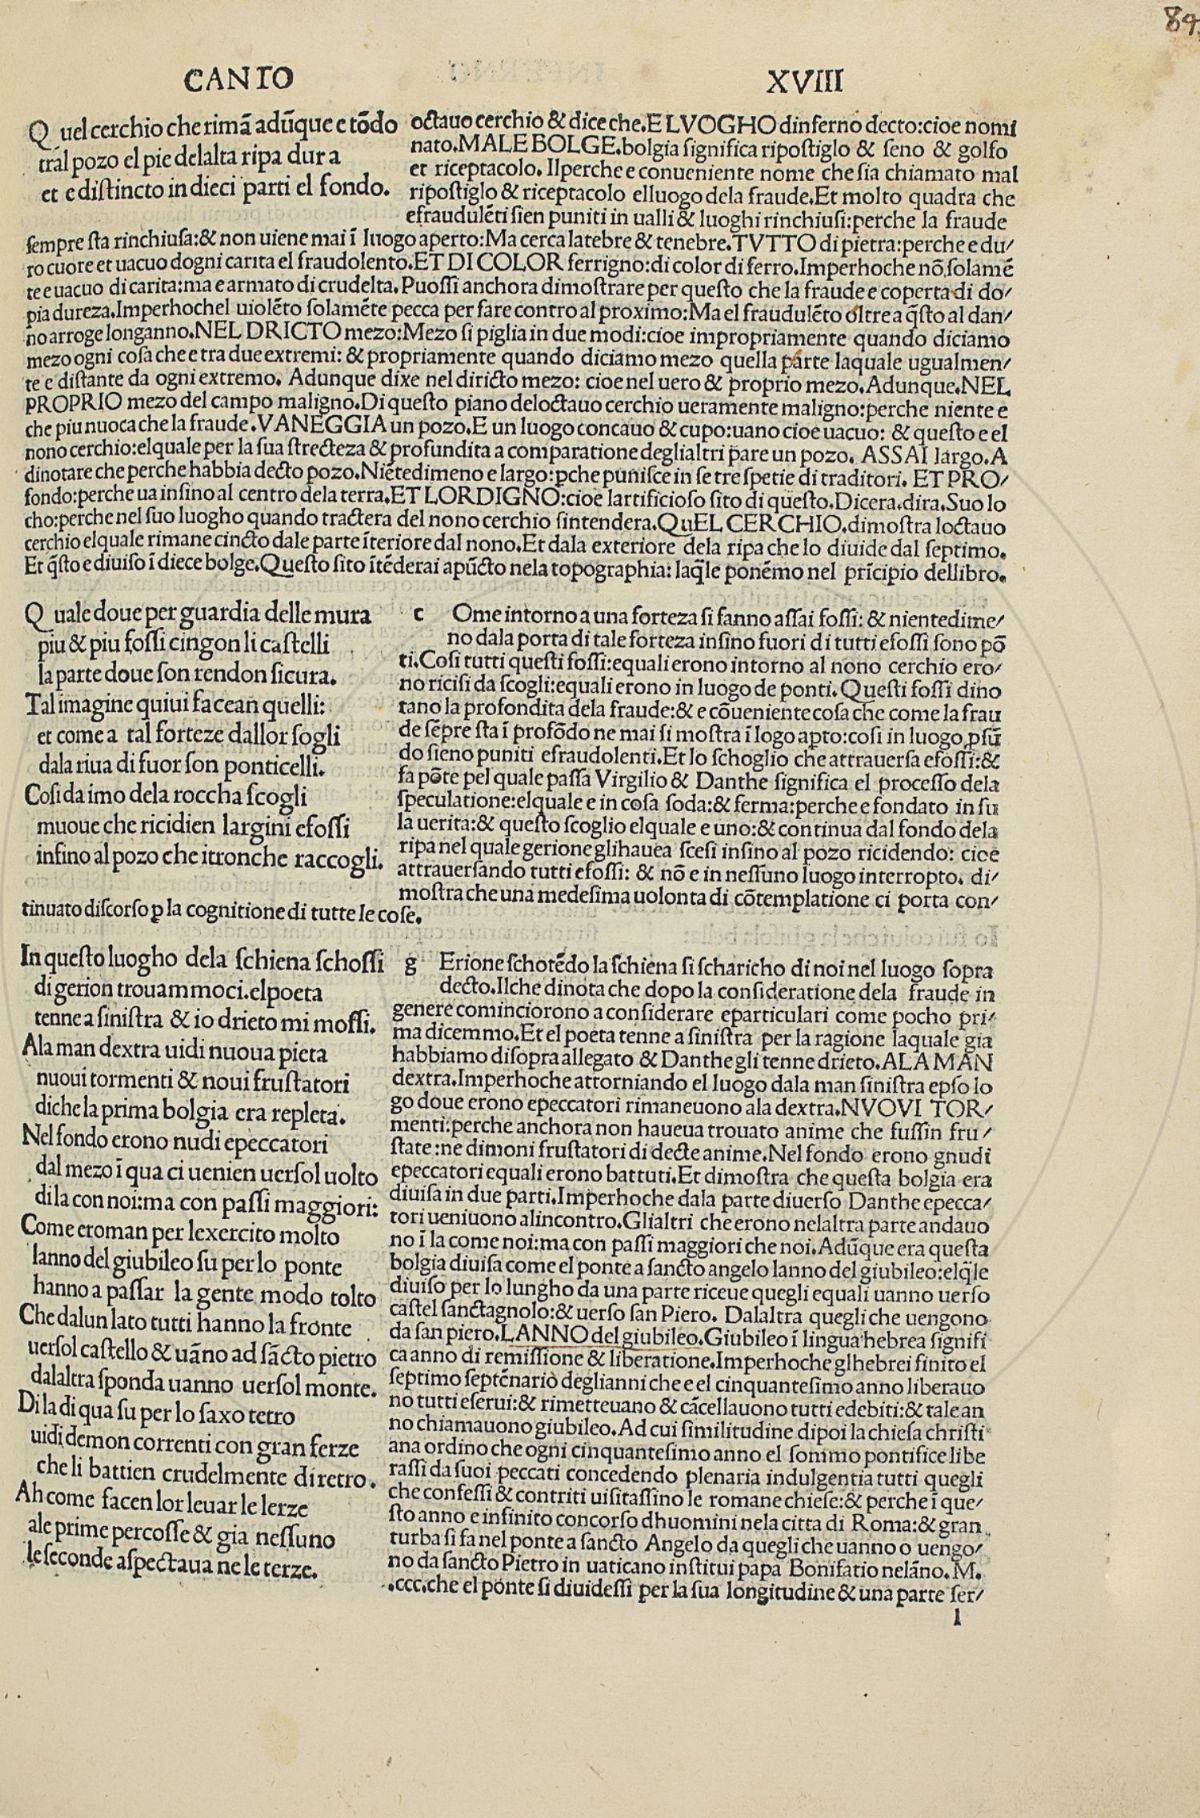 84
CANTO XVIII
Quel cerchio che rimã adũque e tõdo
tral pozo el pie delalta ripa dura
et e distincto in dieci parti el fondo.
octauo cerchio & dice che.EL VOGHO dinferno decto:cioe nomi
nato.MALE BOLGE.bolgia significa ripostiglo & seno & golfo
et riceptacolo. Ilperche e conueniente nome che sia chiamato mal
ripostiglo & riceptacolo elluogo dela fraude.Et molto quadra che
efraudulẽti sien puniti in ualli & luoghi rinchiusi:perche la fraude
sempre sta rinchiusa:& non uiene mai ĩ luogo aperto:Ma cerca latebre & tenebre.TVTTO di pietra:perche e du/
ro cuore et uacuo dogni carita el fraudolento.ET DI COLOR ferrigno:di color di ferro.Imperhoche nõ,solamẽ
te e uacuo di carita:ma e armato di crudelta.Puossi anchora dimostrare per questo che la fraude e coperta di do/
pia dureza.Imperhochel uiolẽto solamẽte pecca per fare contro al proximo:Ma el fraudulẽto oltre a q̃sto al dan/
no arroge longanno.NEL DRICTO mezo:Mezo si piglia in due modi:cioe impropriamente quando diciamo
mezo ogni cosa che e tra due extremi: & propriamente quando diciamo mezo quella parte laquale ugualmen/
te e distante da ogni extremo. Adunque dixe nel diricto mezo: cioe nel uero & proprio mezo.Adunque.NEL
PROPRIO mezo del campo maligno.Di questo piano deloctauo cerchio ueramente maligno:perche niente e
che piu nuoca che la fraude.VANEGGIA un pozo.E un luogo concauo & cupo:uano cioe uacuo: & questo e el
nono cerchio:elquale per la sua strecteza & profundita a comparatione deglialtri pare un pozo. ASSAI largo.A
dinotare che perche habbia decto pozo.Niẽtedimeno e largo:pche punisce in se tre spetie di traditori. ET PRO/
fondo:perche ua insino al centro dela terra.ET LORDIGNO:cioe lartificioso sito di questo.Dicera.dira.Suo lo
cho:perche nel suo luogho quando tractera del nono cerchio sintendera.QuEL CERCHIO.dimostra loctauo
cerchio elquale rimane cincto dale parte ĩteriore dal nono.Et dala exteriore dela ripa che lo diuide dal septimo.
Et q̃sto e diuiso ĩ diece bolge.Questo sito itẽderai apũcto nela topographia: laq̃le ponẽmo nel prĩcipio dellibro.
Quale doue per guardia delle mura
piu & piu fossi cingon li castelli
la parte doue son rendon sicura.
Tal imagine quiui facean quelli:
et come a tal forteze dallor sogli
dala riua di fuor son ponticelli.
Cosi da imo dela roccha scogli
muoue che ricidien largini efossi
infino al pozo che itronche raccogli.
c Ome intorno a una forteza si fanno assai fossi: & nientedime/
no dala porta di tale forteza insino fuori di tutti efossi sono põ
ti.Cosi tutti questi fossi:equali erono intorno al nono cerchio ero/
no ricisi da scogli:equali erono in luogo de ponti.Questi fossi dino
tano la profondita dela fraude:& e cõueniente cosa che come la frau
de sẽpre sta ĩ profõdo ne mai si mostra ĩ logo apto:cosi in luogo pfũ
do sieno puniti efraudolenti.Et lo schoglio che attrauersa efossi:&
fa põte pel quale passa Virgilio & Danthe significa el processo dela
speculatione:elquale e in cosa soda:& ferma:perche e fondato in su
la uerita:& questo scoglio elquale e uno:& continua dal fondo dela
ripa nel quale gerione glihauea scesi insino al pozo ricidendo: cioe
attrauersando tutti efossi: & nõ e in nessuno luogo interropto. di/
mostra che una medesima uolonta di cõtemplatione ci porta con/
tinuato discorso p la cognitione di tutte le cose.
In questo luogho dela schiena schossi
di gerion trouammoci.elpoeta
tenne a sinistra & io drieto mi mossi.
Ala man dextra uidi nuoua pieta
nuoui tormenti & noui frustatori
diche la prima bolgia era repleta.
Nel fondo erono nudi epeccatori
dal mezo ĩ qua ci uenien uersol uolto
di la con noi:ma con passi maggiori:
Come eroman per lexercito molto
lanno del giubileo su per lo ponte
hanno a passar la gente modo tolto
Che dalun lato tutti hanno la fronte
uersol castello & uãno ad sãcto pietro
dalaltra sponda uanno uersol monte.
Di la di qua su per lo saxo tetro
uidi demon correnti con gran ferze
che li battien crudelmente di retro.
Ah come facen lor leuar le lerze
ale prime percosse & gia nessuno
le seconde aspectaua ne le terze.
g Erione schotẽdo la schiena si scharicho di noi nel luogo sopra
decto.Ilche dinota che dopo la consideratione dela fraude in
genere cominciorono a considerare eparticulari come pocho pri/
ma dicemmo. Et el poeta tenne a sinistra per la ragione laquale gia
habbiamo disopra allegato & Danthe gli tenne drieto.ALA MAN
dextra.Imperhoche attorniando el luogo dala man sinistra epso lo
go doue erono epeccatori rimaneuono ala dextra.NVOVI TOR/
menti:perche anchora non haueua trouato anime che fussin fru/
state:ne dimoni frustatori di decte anime.Nel fondo erono gnudi
epeccatori equali erono battuti.Et dimostra che questa bolgia era
diuisa in due parti.Imperhoche dala parte diuerso Danthe epecca/
tori ueniuono alincontro.Glialtri che erono nelaltra parte andauo
no ĩ la come noi:ma con passi maggiori che noi.Adũque era questa
bolgia diuisa come el ponte a sancto angelo lanno del giubileo:elq̃le
diuiso per lo lungho da una parte riceue quegli equali uanno uerso
castel sanctagnolo:& uerso san Piero. Dalaltra quegli che uengono
da san piero.LANNO del giubileo.Giubileo ĩ lingua hebrea signifi
ca anno di remissione & liberatione.Imperhoche glhebrei finito el
septimo septẽnario deglianni che e el cinquantesimo anno liberauo
no tutti eserui:& rimetteuano & cãcellauono tutti edebiti:& tale an
no chiamauono giubileo. Ad cui similitudine dipoi la chiesa christi
ana ordino che ogni cinquantesimo anno el sommo pontifice libe
rassi da suoi peccati concedendo plenaria indulgentia tutti quegli
che confessi & contriti uisitassino le romane chiese:& perche ĩ que/
sto anno e infinito concorso dhuomini nela citta di Roma:& gran
turba si fa nel ponte a sancto Angelo da quegli che uanno o uengo/
no da sancto Pietro in uaticano institui papa Bonifatio nelãno.M.
.ccc.che el ponte si diuidessi per la sua longitudine & una parte ser/
l